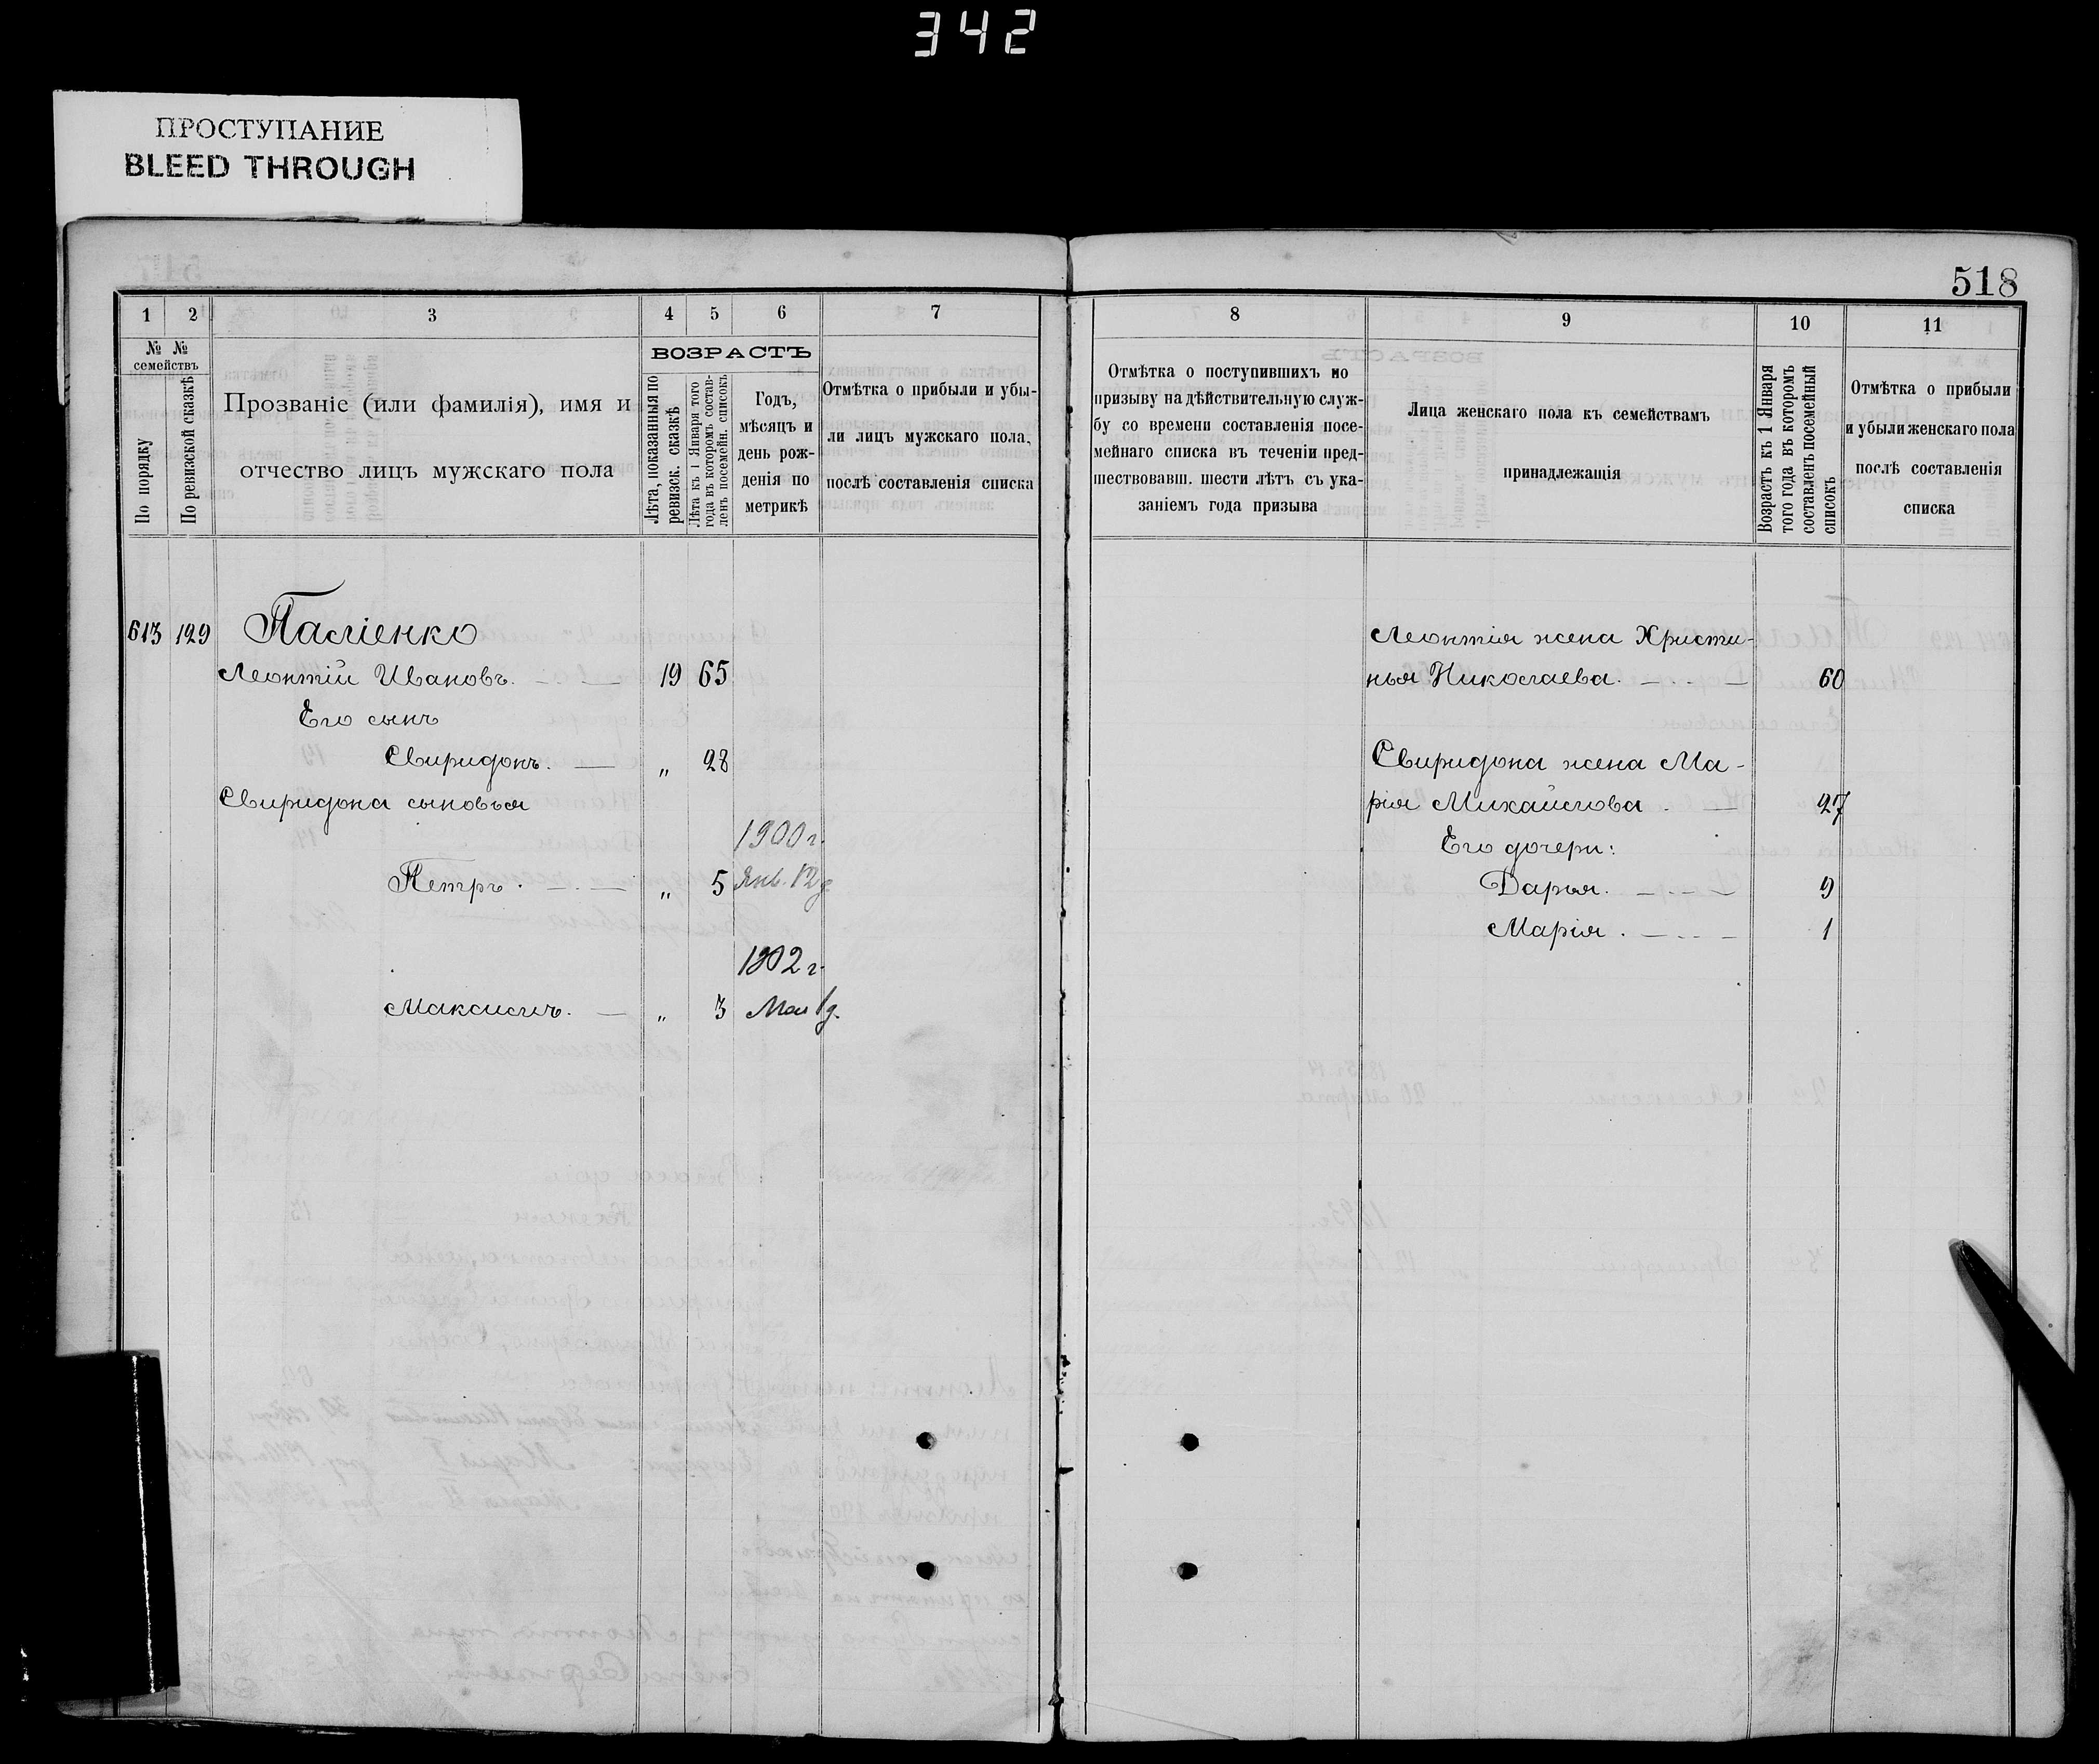 342
ПРОСТУПАНИЕ
BLEED THROUGH
518
1 2 3 4 5 6 7
№ №
семействъ
По порядку
По ревизской сказкѣ
Прозваніе (или фамилія), имя и
отчество лицъ мужскаго пола
ВОЗРАСТЪ
Лѣта, показанныя по
ревизск. сказкѣ
Лѣта къ 1 Января того
года въ которомъ состав-
ленъ посемейн. списокъ
Годъ,
мѣсяцъ и
день рож-
денія по
метрикѣ
Отмѣтка о прибыли и убы-
ли лицъ мужскаго пола,
послѣ составленія списка
613 129 Пасліенко
Леонтій Ивановъ. 19 65
Его сынъ
Свиридонъ. „ 28
Свиридона сыновья
1900 г.
Петръ. „ 5 Янв. 12 д.
1902 г.
Максимъ. „ 3 Мая 1 д.
8 9 10 11
Отмѣтка о поступившихъ по
призыву на дѣйствительную служ-
бу со времени составленія посе-
мейнаго списка въ теченіи пред-
шествовавш. шести лѣтъ съ ука-
заніемъ года призыва
Лица женскаго пола къ семействамъ
принадлежащія
Возрастъ къ 1 Января
того года въ которомъ
составленъ посемейный
списокъ
Отмѣтка о прибыли
и убыли женскаго пола
послѣ составленія
списка
Леонтія жена Христи-
нья Николаева. 60
Свиридона жена Ма-
рія Михайлова. 27
Его дочери:
Дарья. 9
Марія. 1